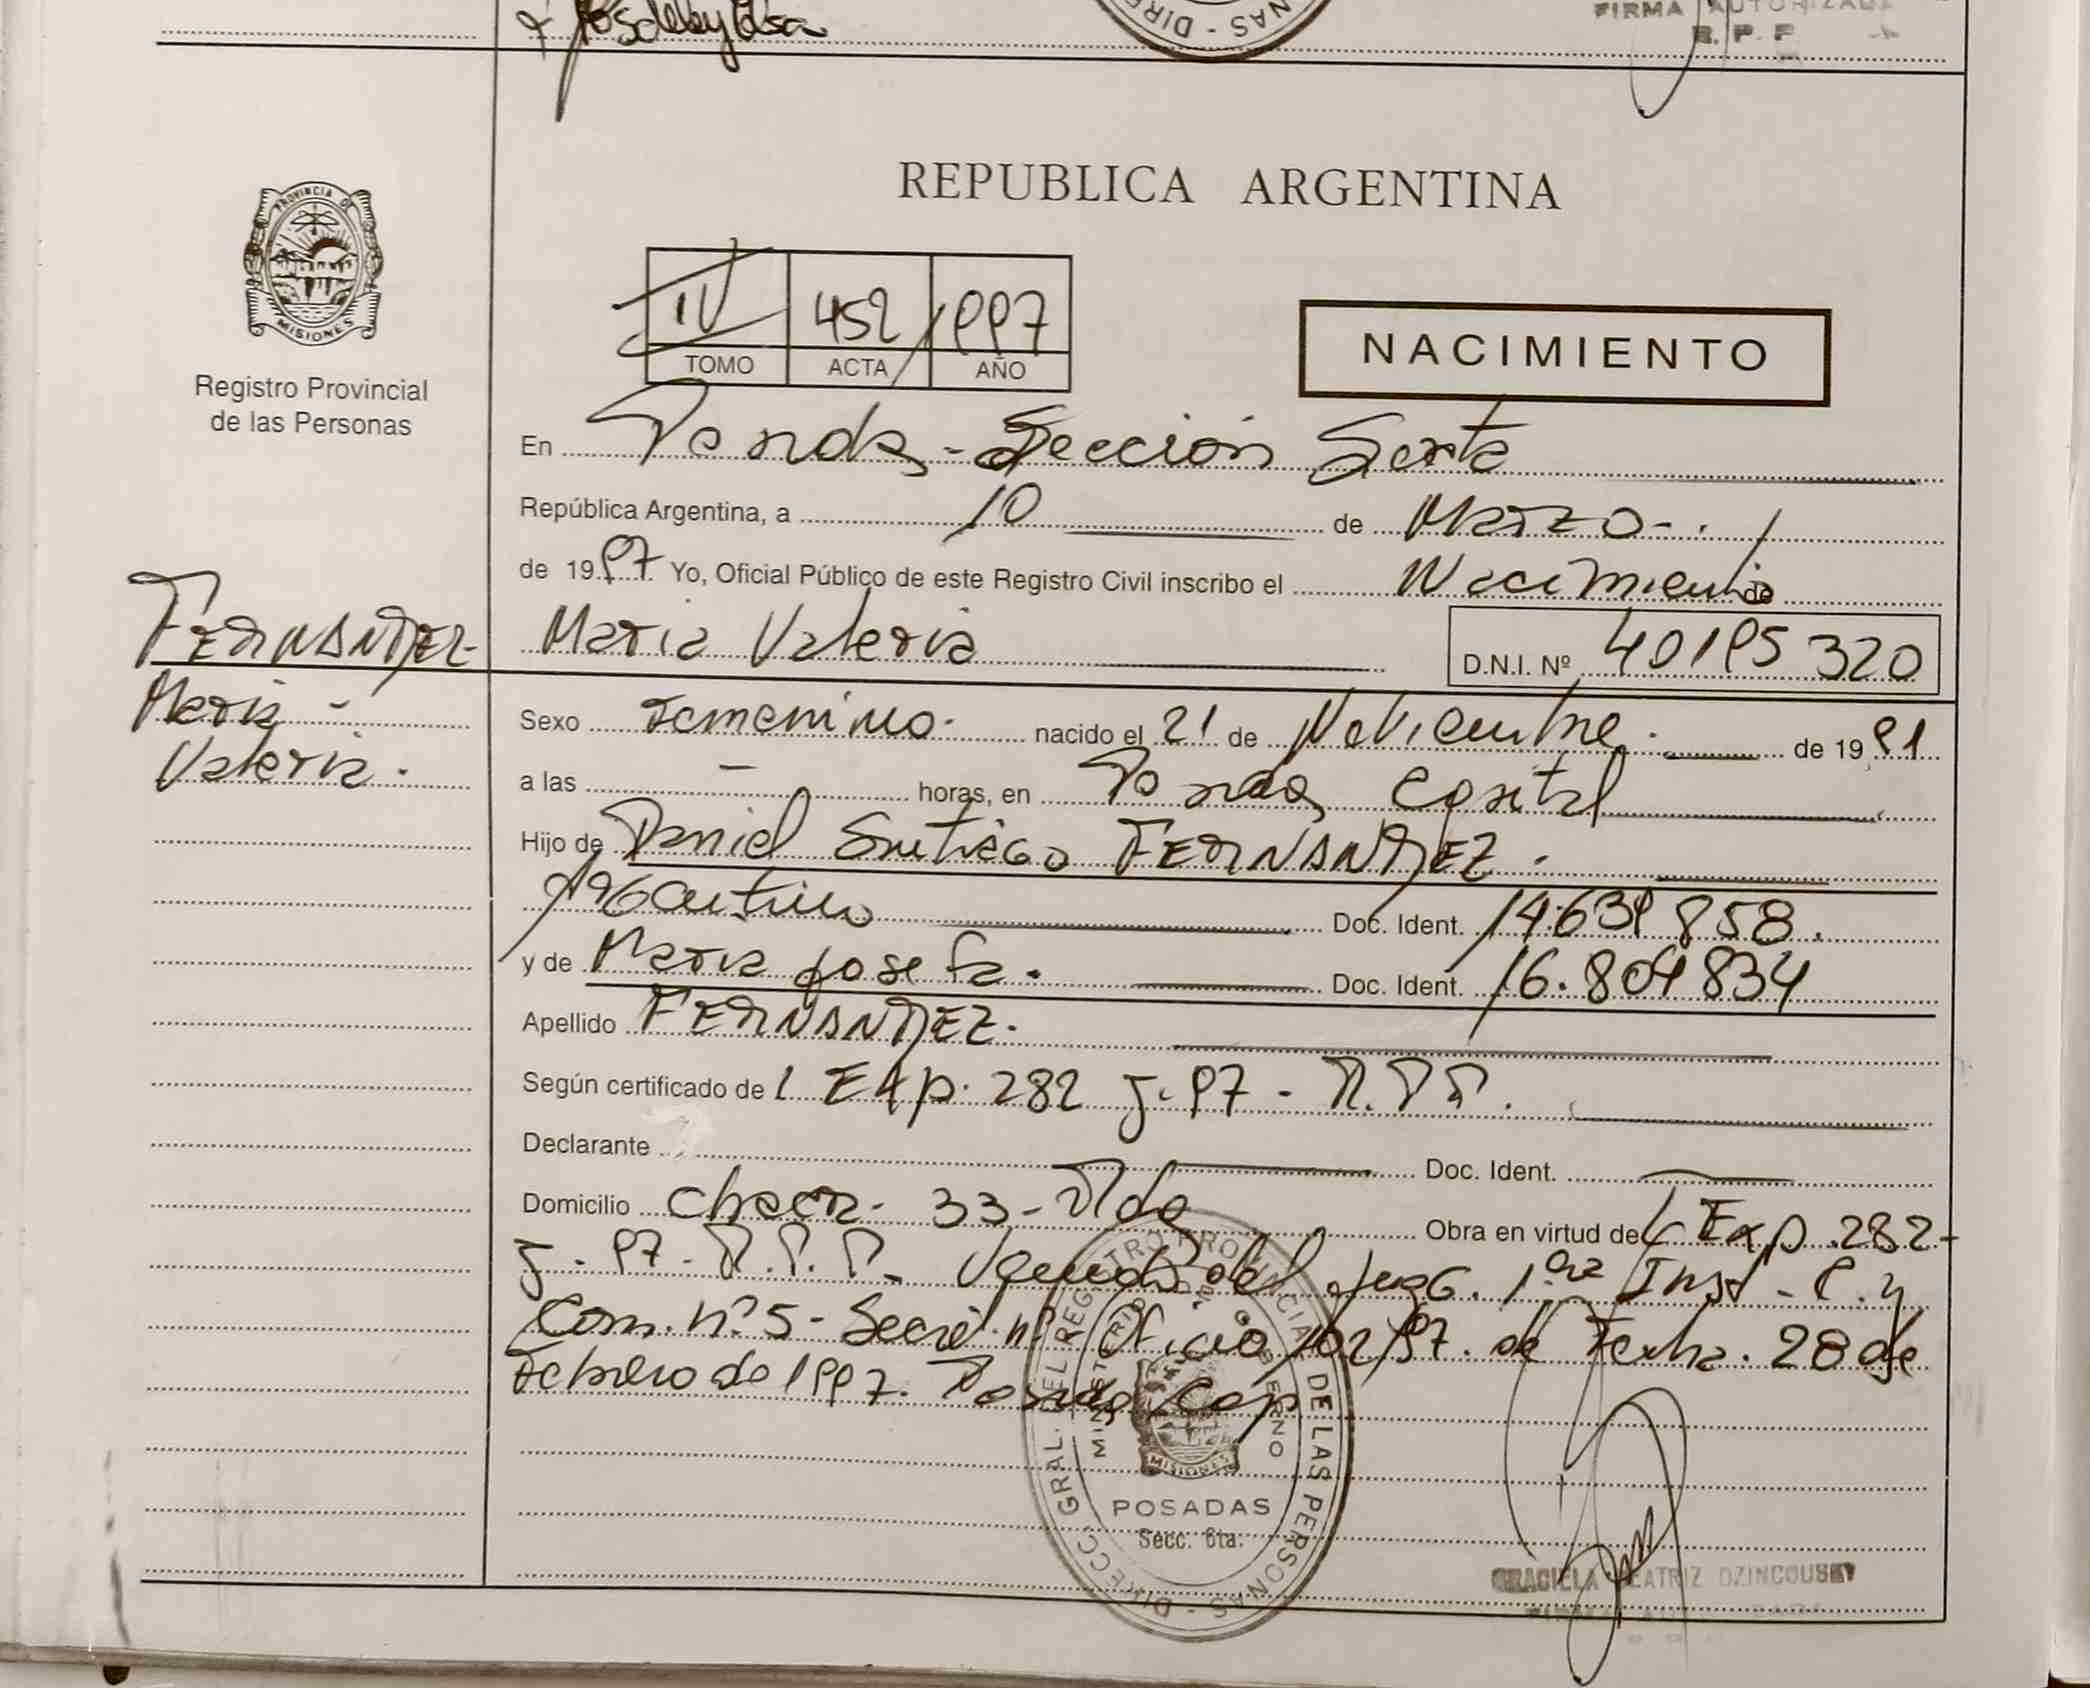 FIRMA AUTORIZADA
R. P. P.
NAS - DIRE
REPUBLICA ARGENTINA
PROVINCIA DE
MISIONES
Registro Provincial
de las Personas
IV 452 1997
TOMO ACTA AÑO
NACIMIENTO
En Posadas - Sección Sexta
República Argentina, a 10 de Marzo -.
de 1997 Yo, Oficial Público de este Registro Civil inscribo el Nacimiento de
FERNANDEZ Maria Valeria D.N.I. Nº 40195320
Maria -
Valeria.
Sexo Femenino. nacido el 21 de Noviembre. de 1991
a las - horas, en Posadas, Capital
Hijo de Daniel Santiago FERNANDEZ.
Argentino Doc. Ident. 14.639 858.
y de Maria Josefa. Doc. Ident. 16.809 834
Apellido FERNANDEZ.
Según certificado de l Exp. 282 J-97 - R.P.P.
Declarante Doc. Ident.
Domicilio Chacra 33 - Obra en virtud de Exp. 282-
J. 97 - R.P.P. del Juzg. 1ra Inst - C. y
Com. nº 5 - Secret. nº Oficio 102/97. de Fecha. 28 de
Febrero de 1997. Posadas Cap
DIRECC. GRAL. DEL REGISTRO PROVINCIAL DE LAS PERSONAS
MINISTERIO DE GOBIERNO
MISIONES
POSADAS
Secc. 6ta.
GRACIELA BEATRIZ DZINCOUSKY